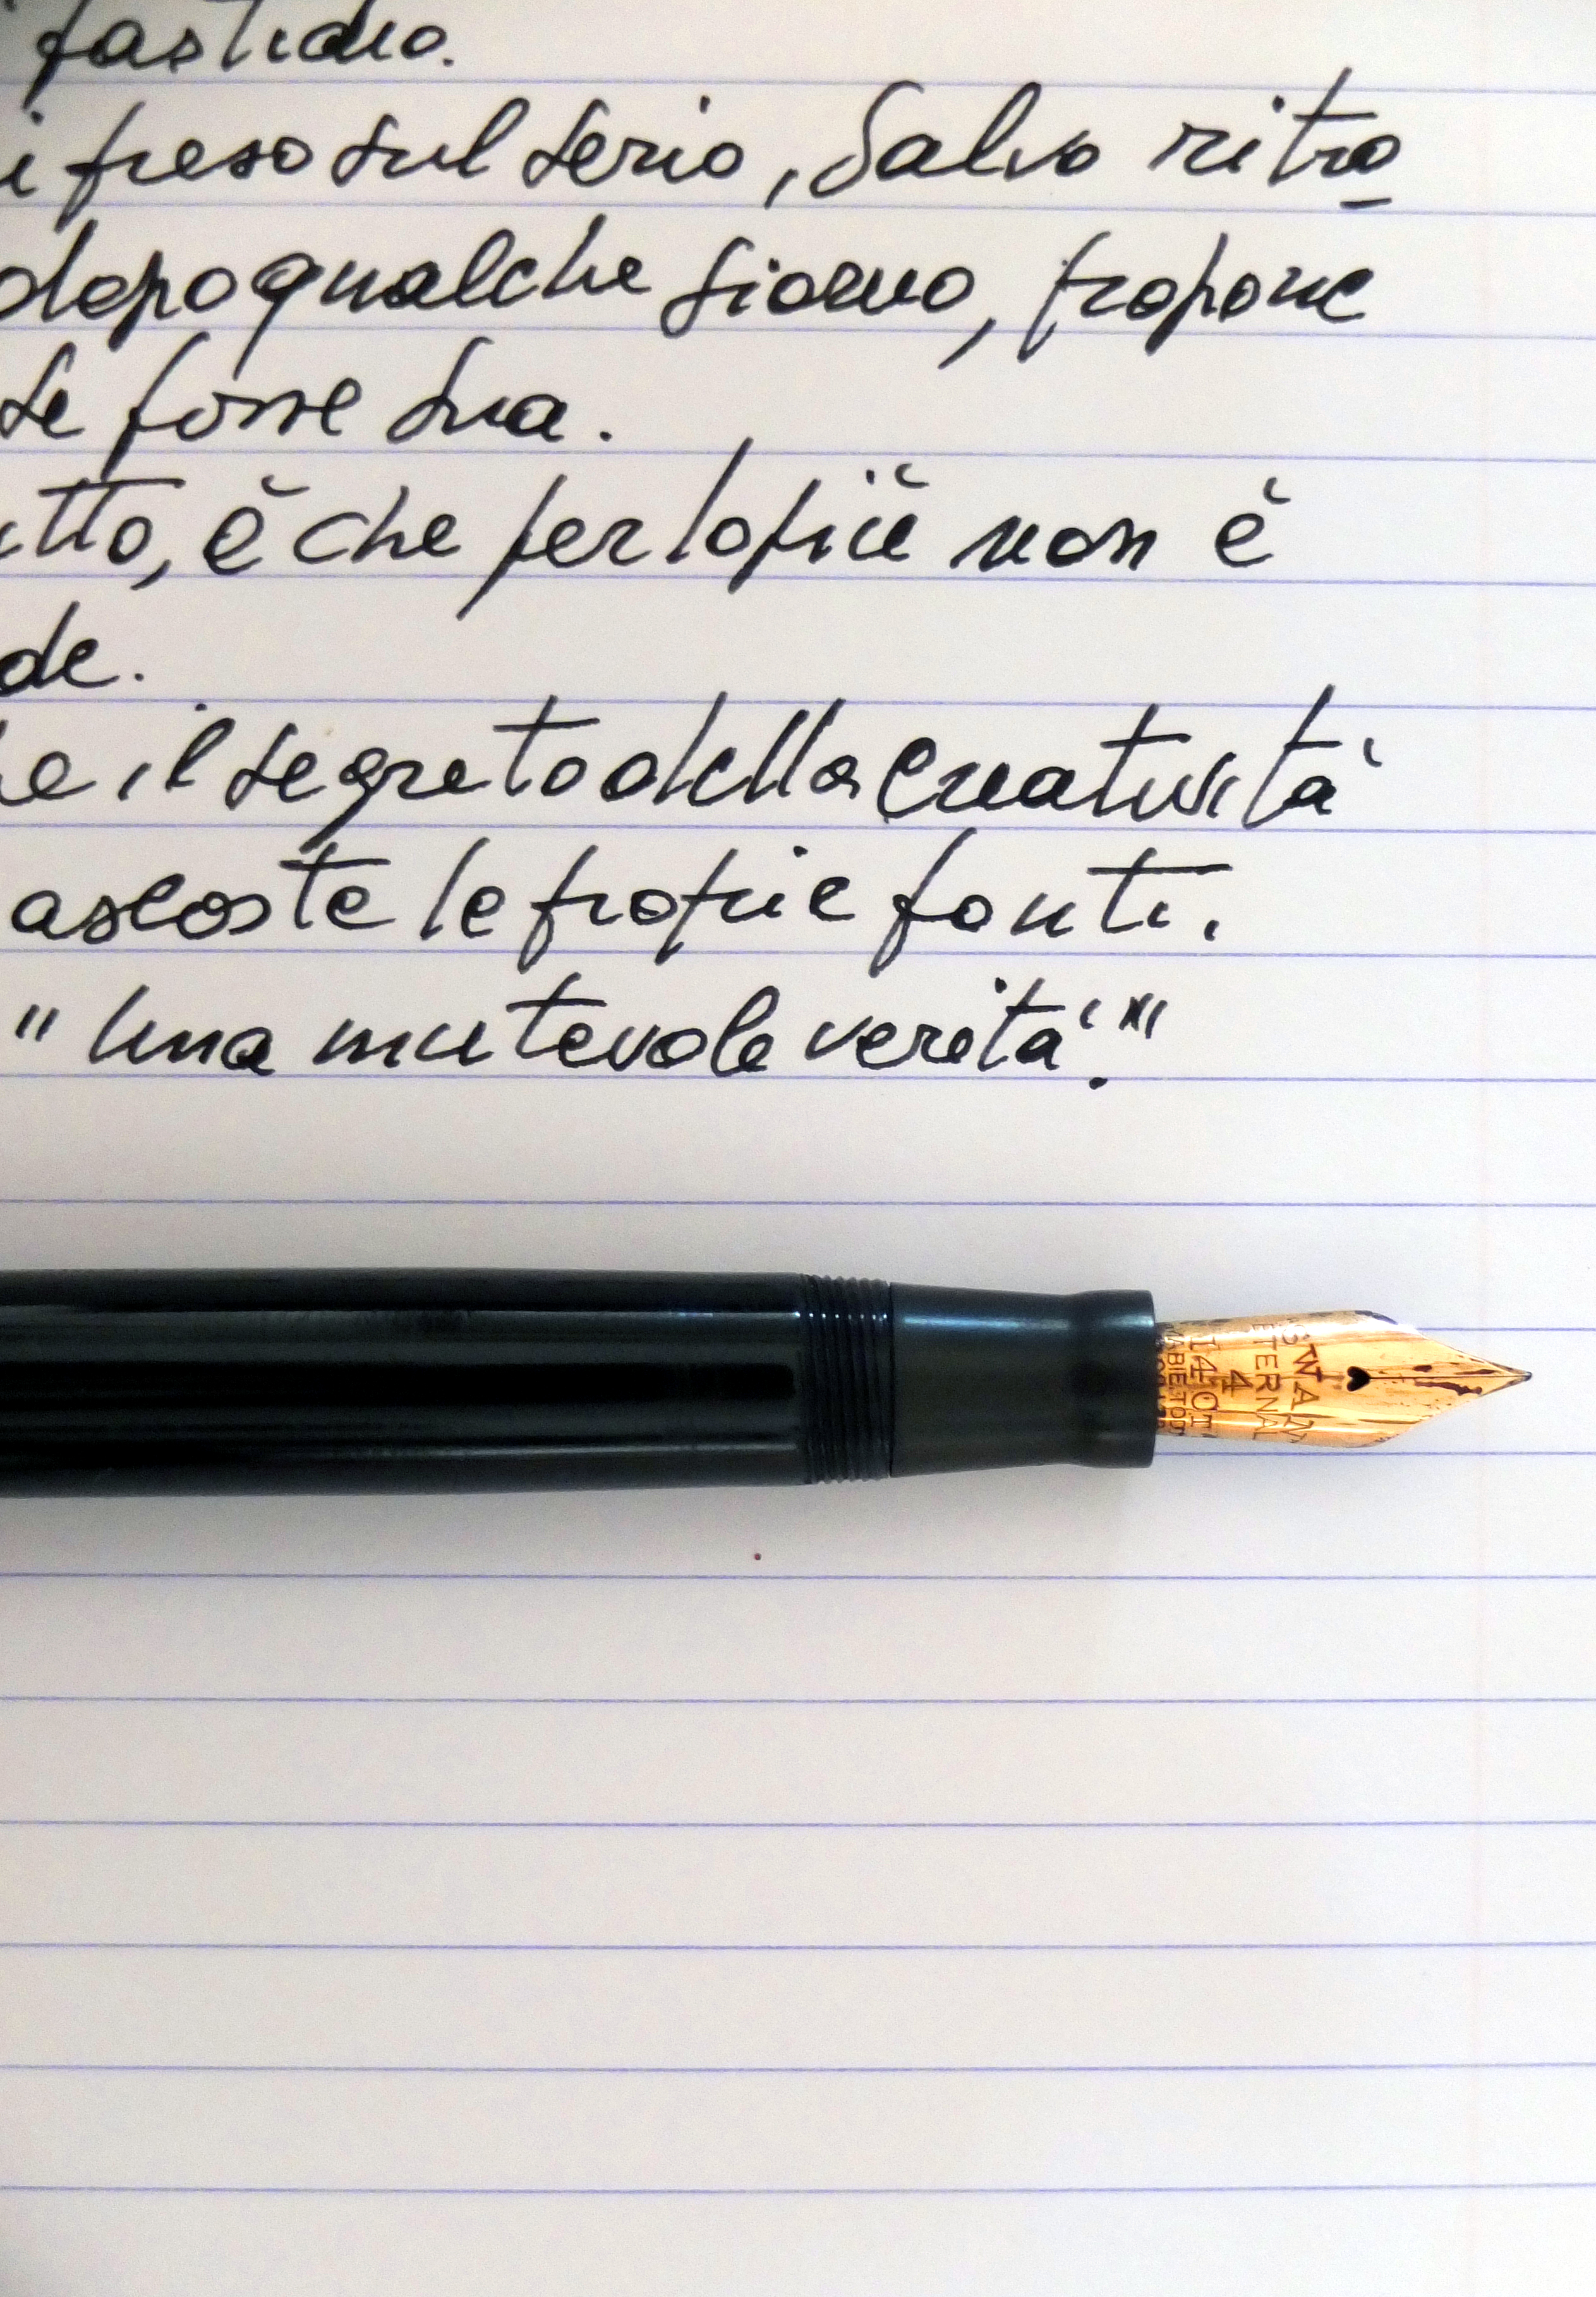 fastidio.
i preso sul serio, Salvo ritro
dopo qualche giorno, propone
se fosse sua.
tto, è che per lo più non è
de.
e il segreto della creatività
ascoste le proprie fonti.
"Una mutevole verità"."
SWAN
ETERNAL
4
14 CT
MABIE TODD